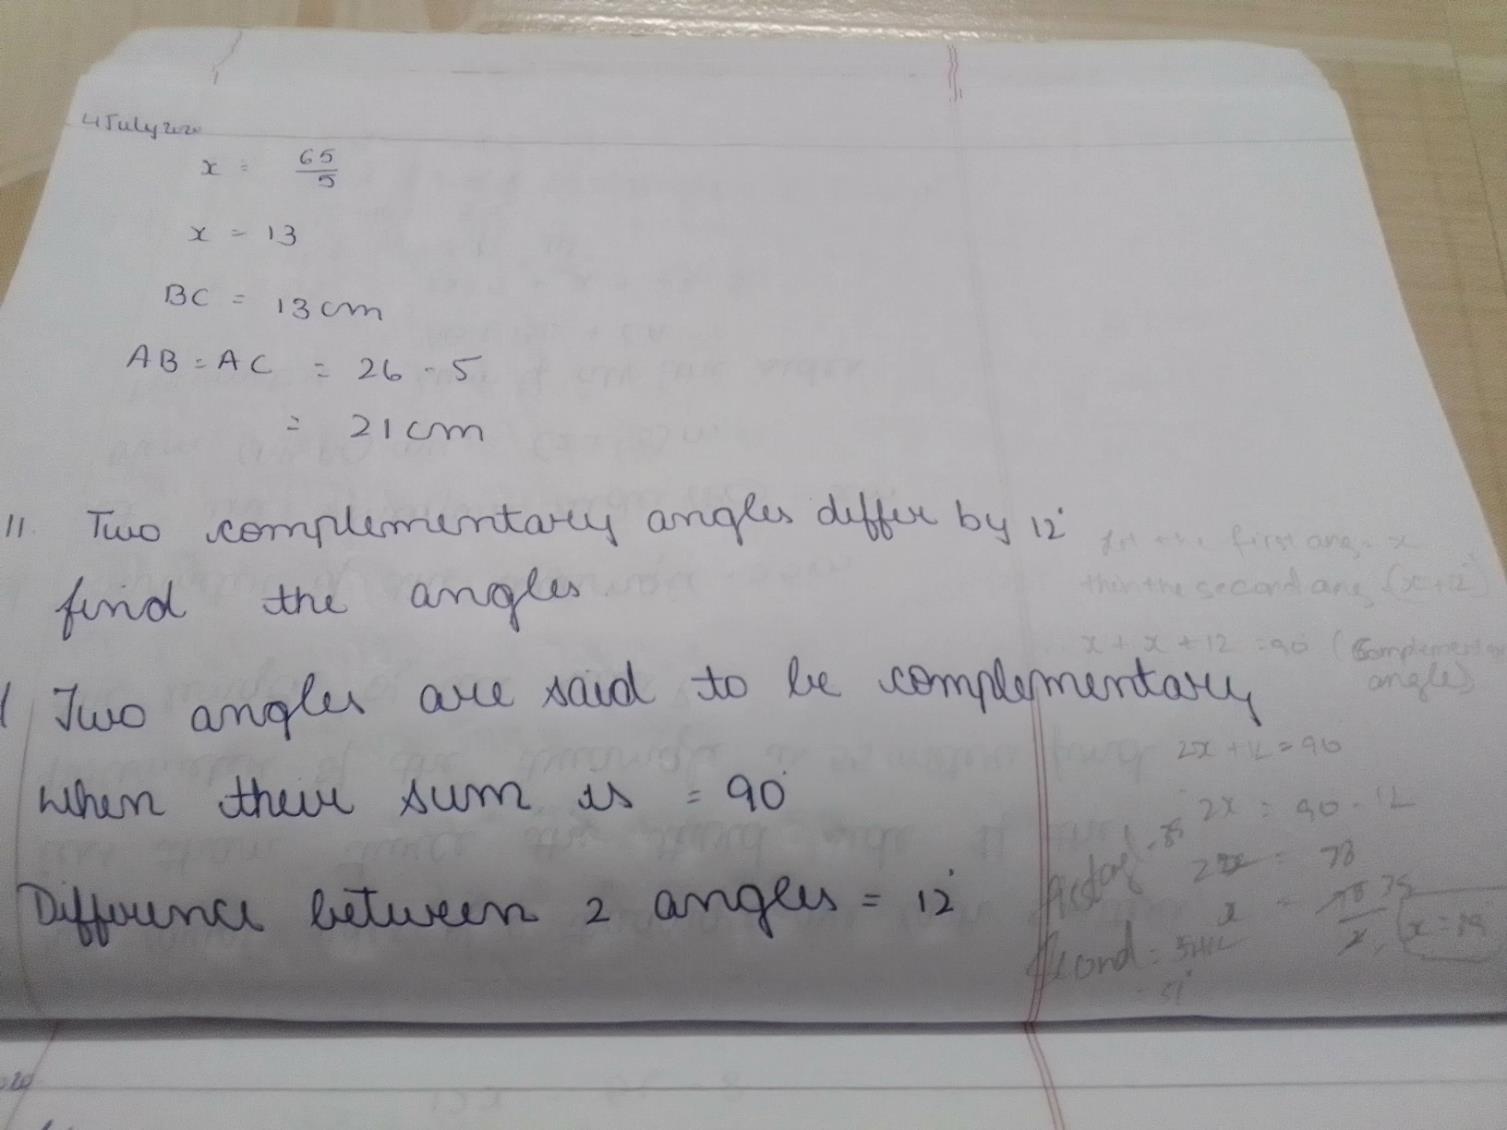 4 July 2020
x = 65/5
x = 13
BC = 13 cm
AB = AC = 26 - 5
= 21 cm
11. Two complementary angles differ by 12°
find the angles
Two angles are said to be complementary
when their sum is = 90°
Difference between 2 angles = 12°
let the first ang = x
then the second ang (x+12°)
x + x + 12 = 90 (Complementary
angles)
2x + 12 = 90
2x = 90 - 12
2x = 78
x =
Second =